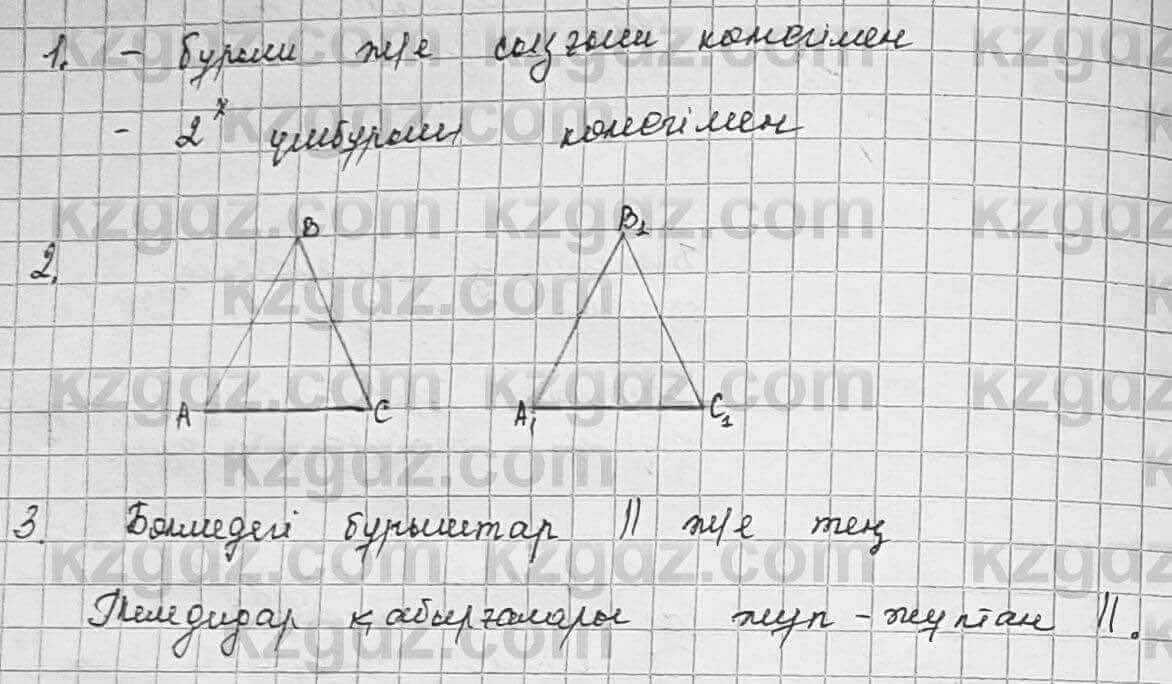 1. - бұрыш ж/е сызғыш көмегімен
- 2ˣ үшбұрыш көмегімен
2.
B B₁
A C A₁ C₁
3. Бөлмедегі бұрыштар || ж/е тең
Теледидар қабырғалары жұп-жұптан ||.
kzgdz.com